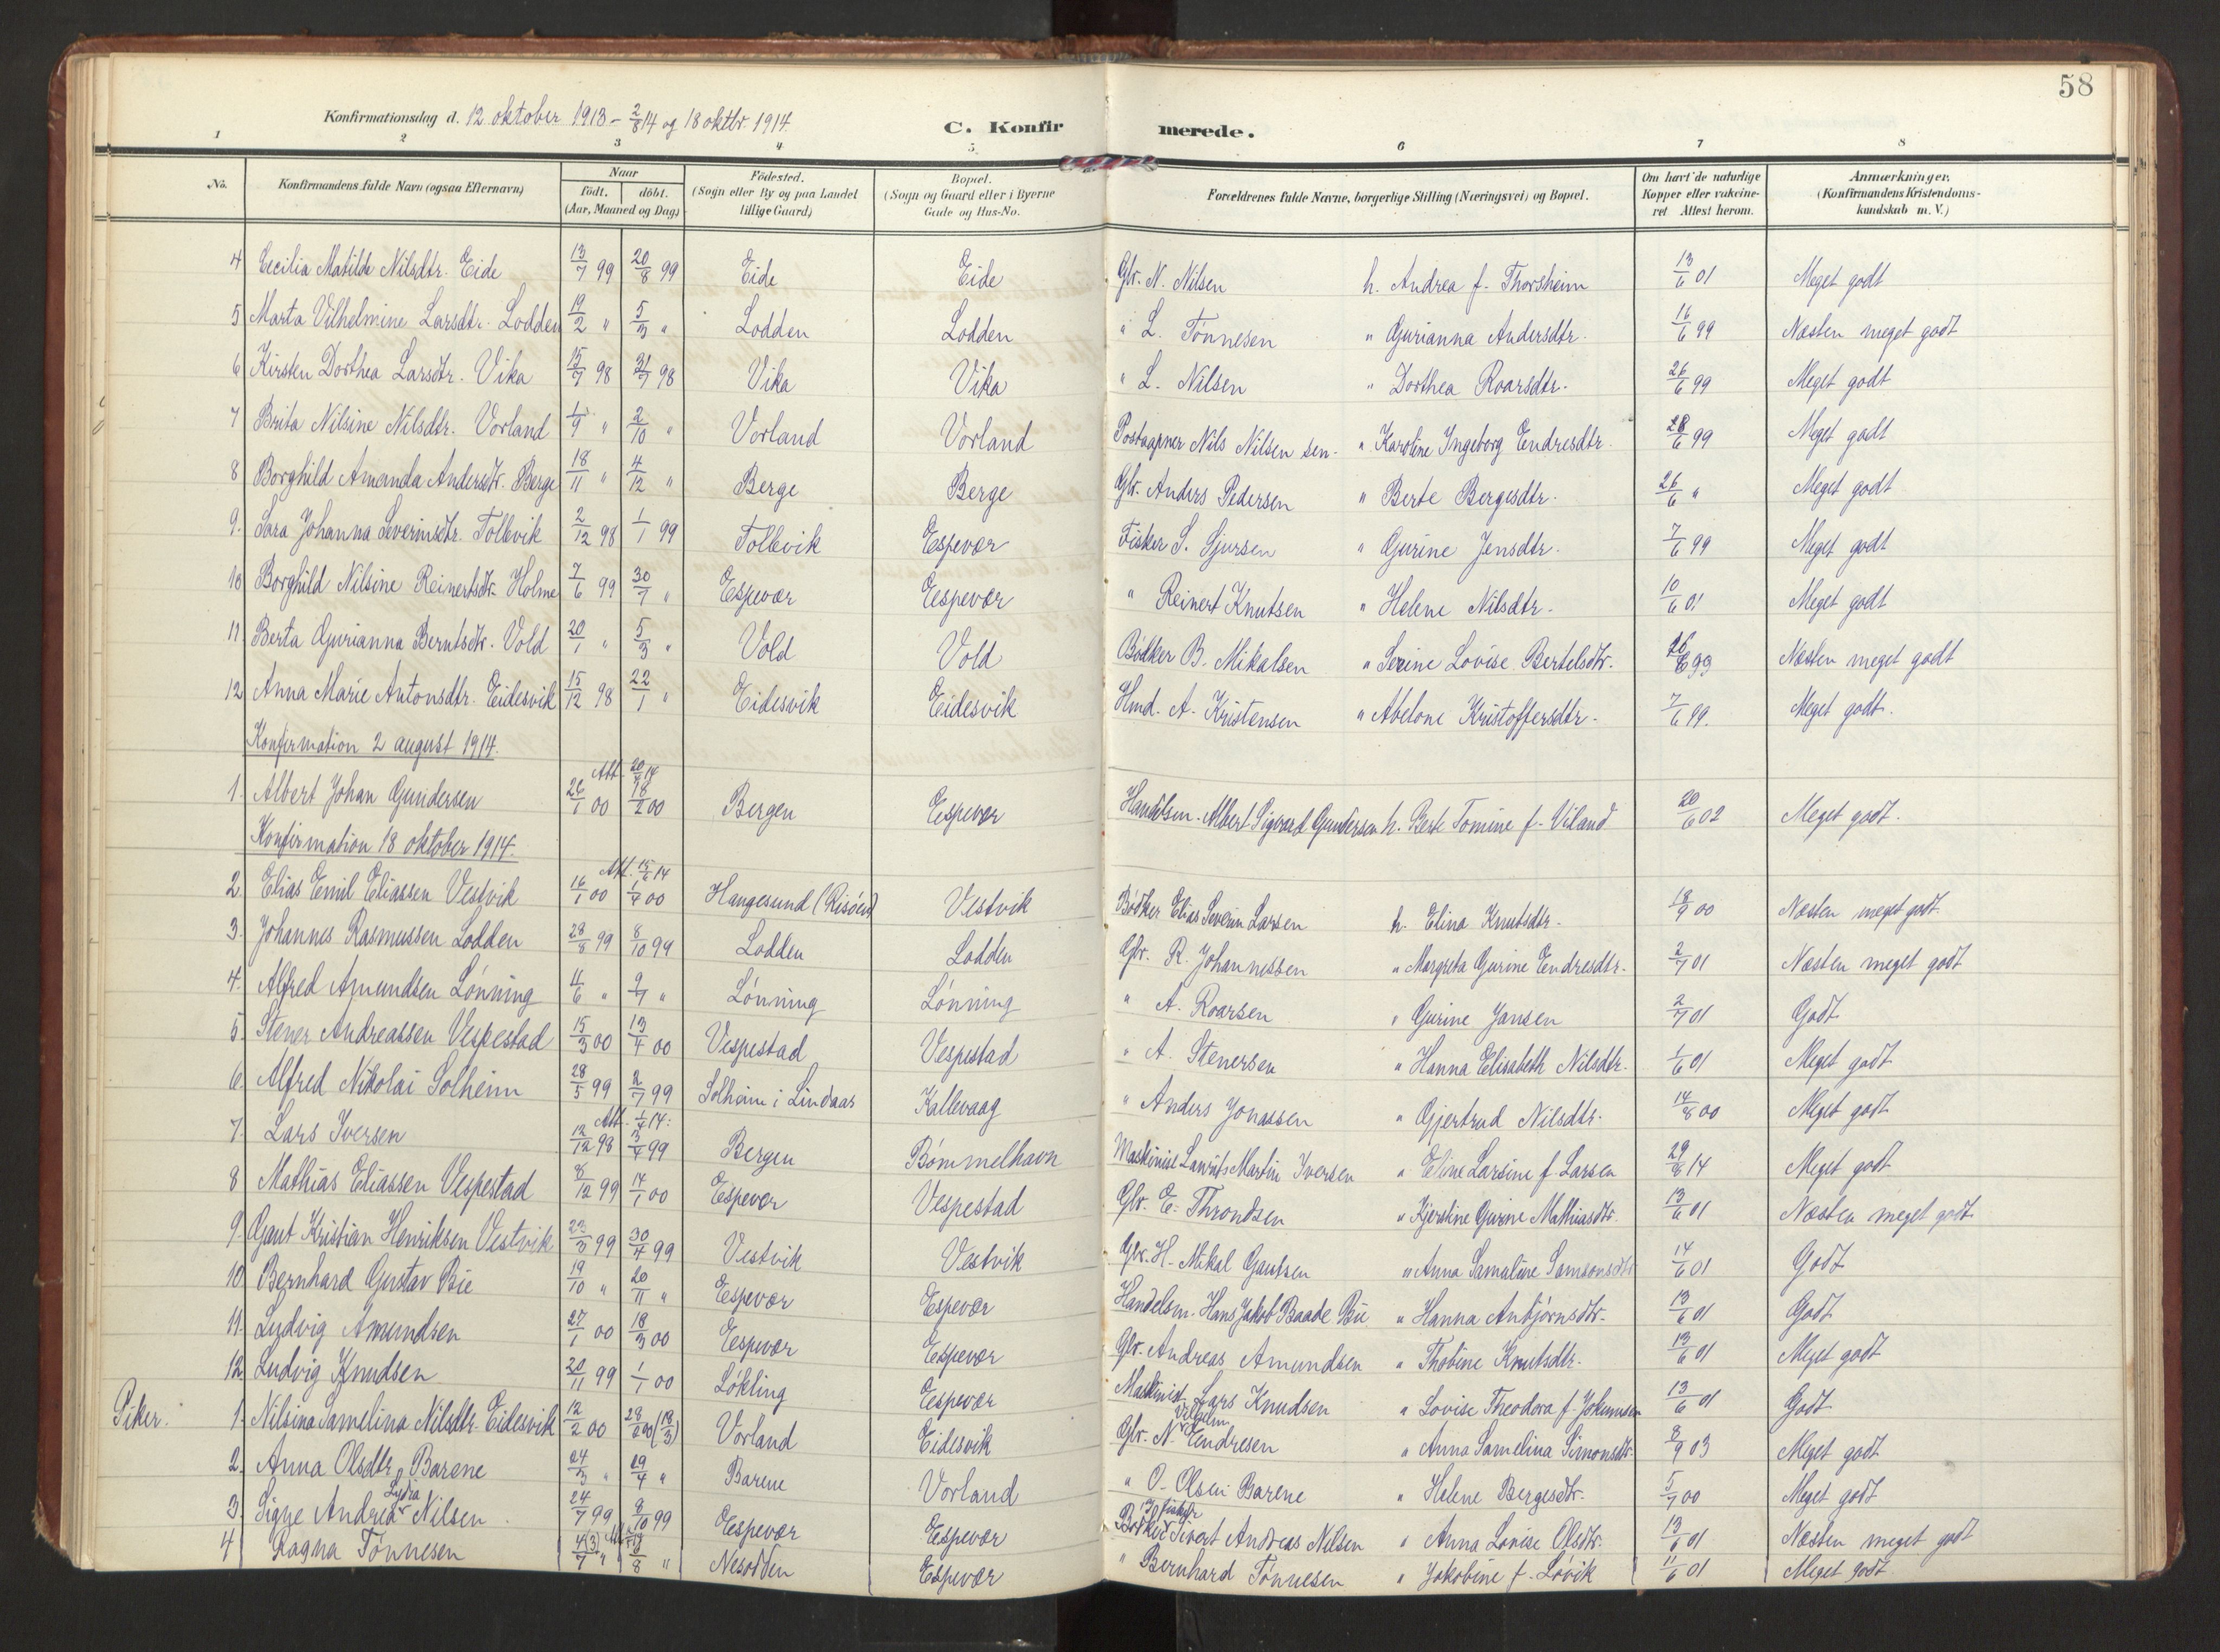 58
Konfirmationsdag d. 12 oktober 1913 - 2/8 14 og 18 oktbr. 1914. C. Konfirmerede.
1 2 3 4 5 6 7 8
No. Konfirmandens fulde Navn (ogsaa Efternavn) Naar født. døbt. (Aar, Maaned og Dag) Fødested. (Sogn eller By og paa Landet tillige Gaard) Bopæl. (Sogn og Gaard eller i Byerne Gade og Hus-No. Forældrenes fulde Navne, borgerlige Stilling (Næringsvei) og Bopæl. Om havt de naturlige Kopper eller vakcineret Attest herom. Anmærkninger. (Konfirmandens Kristendomskundskab m. V.)
4 Cecilia Matilde Nilsdtr. Eide 13/7 99 20/8 99 Eide Eide Gbr. N. Nilsen h. Andrea f. Thorsheim 13/6 01 Meget godt
5 Marta Vilhelmine Larsdtr. Lodden 19/2 " 5/3 " Lodden Lodden " L. Tønnesen " Gurianna Andersdtr. 16/6 99 Næsten meget godt
6 Kirsten Dorthea Larsdtr. Vika 15/7 98 31/7 98 Vika Vika " L. Nilsen " Dorthea Roarsdtr. 26/6 99 Meget godt
7 Brita Nilsine Nilsdtr. Vorland 1/9 " 2/10 " Vorland Vorland Postaapner Nils Nilsen sen. " Karoline Ingeborg Endresdtr. 28/6 99 Meget godt
8 Borghild Amanda Andersdtr. Berge 18/11 " 4/12 " Berge Berge Gbr. Anders Pedersen " Berte Bergesdtr. 26/6 " Meget godt
9. Sara Johanna Severinsdtr. Tollevik 2/12 98 1/1 99 Tollevik Espevær Fisker S. Sjursen " Gurine Jensdtr. 7/6 99 Meget godt
10 Borghild Nilsine Reinertsdtr. Holme 7/6 99 30/7 " Espevær Espevær " Reinert Knutsen " Helene Nilsdtr. 10/6 01 Meget godt
11 Berta Gurianna Berntsdtr. Vold 20/1 " 5/3 " Vold Vold Bødker B. Mikalsen " Serine Lovise Bertelsdtr. 26/6 99 Næsten meget godt
12 Anna Marie Antonsdtr. Eidesvik 15/12 98 22/1 " Eidesvik Eidesvik Hmd. A. Kristensen " Abelone Kristoffersdtr. 7/6 99. Meget godt.
Konfirmation 2 august 1914.
Att. 20/7 14
1. Albert Johan Gundersen 26/1 00 18/2 00 Bergen Espevær Handelsm. Albert Sigvard Gundersen h. Berte Tomine f. Viland 20/6 02 Meget godt.
Konfirmation 18 oktober 1914.
Att. 15/6 14
2. Elias Emil Eliassen Vestvik 16/1 00 1/4 00 Haugesund (Risøen) Vestvik Bødker Elias Severin Larsen h. Elina Knutsdtr. 18/9 00 Næsten meget godt.
3. Johannes Rasmussen Lodden 28/8 99 8/10 99 Lodden Lodden Gbr. R. Johannessen " Margreta Gurine Endresdtr. 2/7 01 Næsten meget godt
4. Alfred Amundsen Lønning 11/6 " 9/7 " Lønning Lønning " A. Roarsen " Gurine Jansen 2/7 01 Godt
5. Stener Andreassen Vespestad 15/3 00 13/4 00 Vespestad Vespestad " A. Stenersen " Hanna Elisabeth Nilsdtr. 1/6 01 Meget godt
6. Alfred Nikolai Solheim 28/5 99 2/7 99 Solheim i Lindaas Kallevaag " Anders Jonassen " Gjertrud Nilsdtr. 14/8 00 Meget godt
Att. 1/7 14:
7. Lars Iversen 12/12 98 3/4 99 Bergen Bømmelhavn Maskinist Lauritz Martin Iversen " Eline Larsine f. Larsen 29/6 14 Meget godt
8 Mathias Eliassen Vespestad 8/12 99 14/1 00 Espevær Vespestad Gbr. E. Throndsen " Kjerstine Gurine Mathiasdtr. 13/6 01 Næsten meget godt
9. Gaut Kristian Henriksen Vestvik 23/3 99 30/4 99 Vestvik Vestvik Gbr. H. Mikal Gautsen " Anna Samaline Samsonsdtr 14/6 01 Godt
10. Bernhard Gustav Bie 19/10 " 20/11 " Espevær Espevær Handelsm. Hans Jakob Baade Bie " Hanna Anbjørnsdtr. 13/6 01 Godt
11. Ludvig Amundsen 27/1 00 18/3 00 Espevær Espevær Gbr. Andreas Amundsen " Thobine Knutsdtr. 13/6 01 Meget godt
12 Ludvig Knudsen 20/11 99 1/1 00 Løkling Espevær Maskinist Lars Knudsen " Lovise Theodora f. Jokumsen 13/6 01 Godt
Piker. 1. Nilsina Samelina Nilsdtr. Eidesvik 12/2 00 (18/3) Vorland Eidesvik Gbr. N. Vilhelm Endresen " Anna Samelina Simonsdtr 8/9 03 Meget godt
2. Anna Olsdtr Barene 24/3 " 29/4 " Barene Vorland " O. Olsen Barene " Helene Bergesdtr. 5/7 00 Meget godt
3. Signe Andrea Lydia Nilsen. 24/7 99 8/10 99 Espevær Espevær Bødker Sivert Andreas Nilsen " Anna Lovise Olsdtr. 13/6 01 Næsten meget godt
4 Ragna Tønnesen Nesodden Espevær " Bernhard Tønnesen " Jakobine f. Løvik 11/6 01 Meget godt